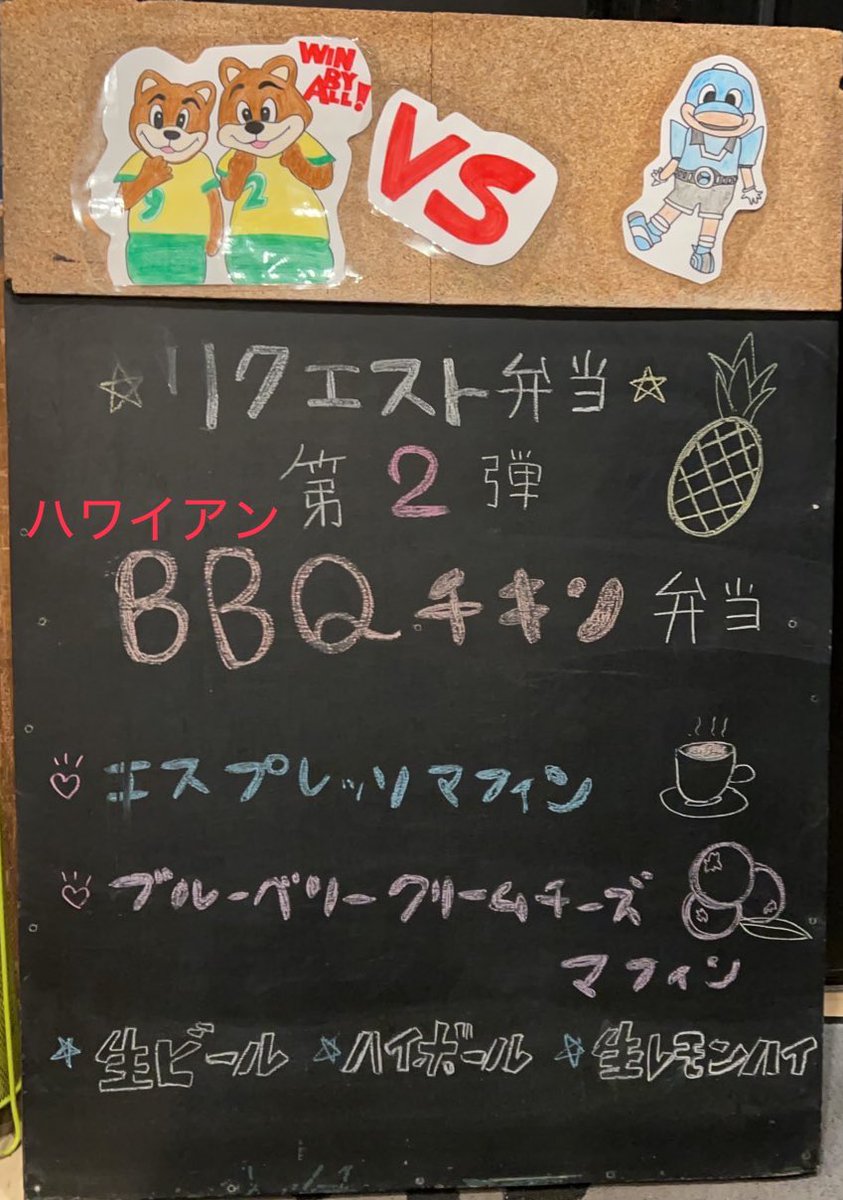 WIN
BY
ALL!
VS
9
2
☆リクエスト弁当☆
第2弾
ハワイアン
BBQチキン弁当
♡エスプレッソマフィン
♡ブルーベリークリームチーズ
マフィン
☆生ビール ☆ハイボール ☆生レモンハイ